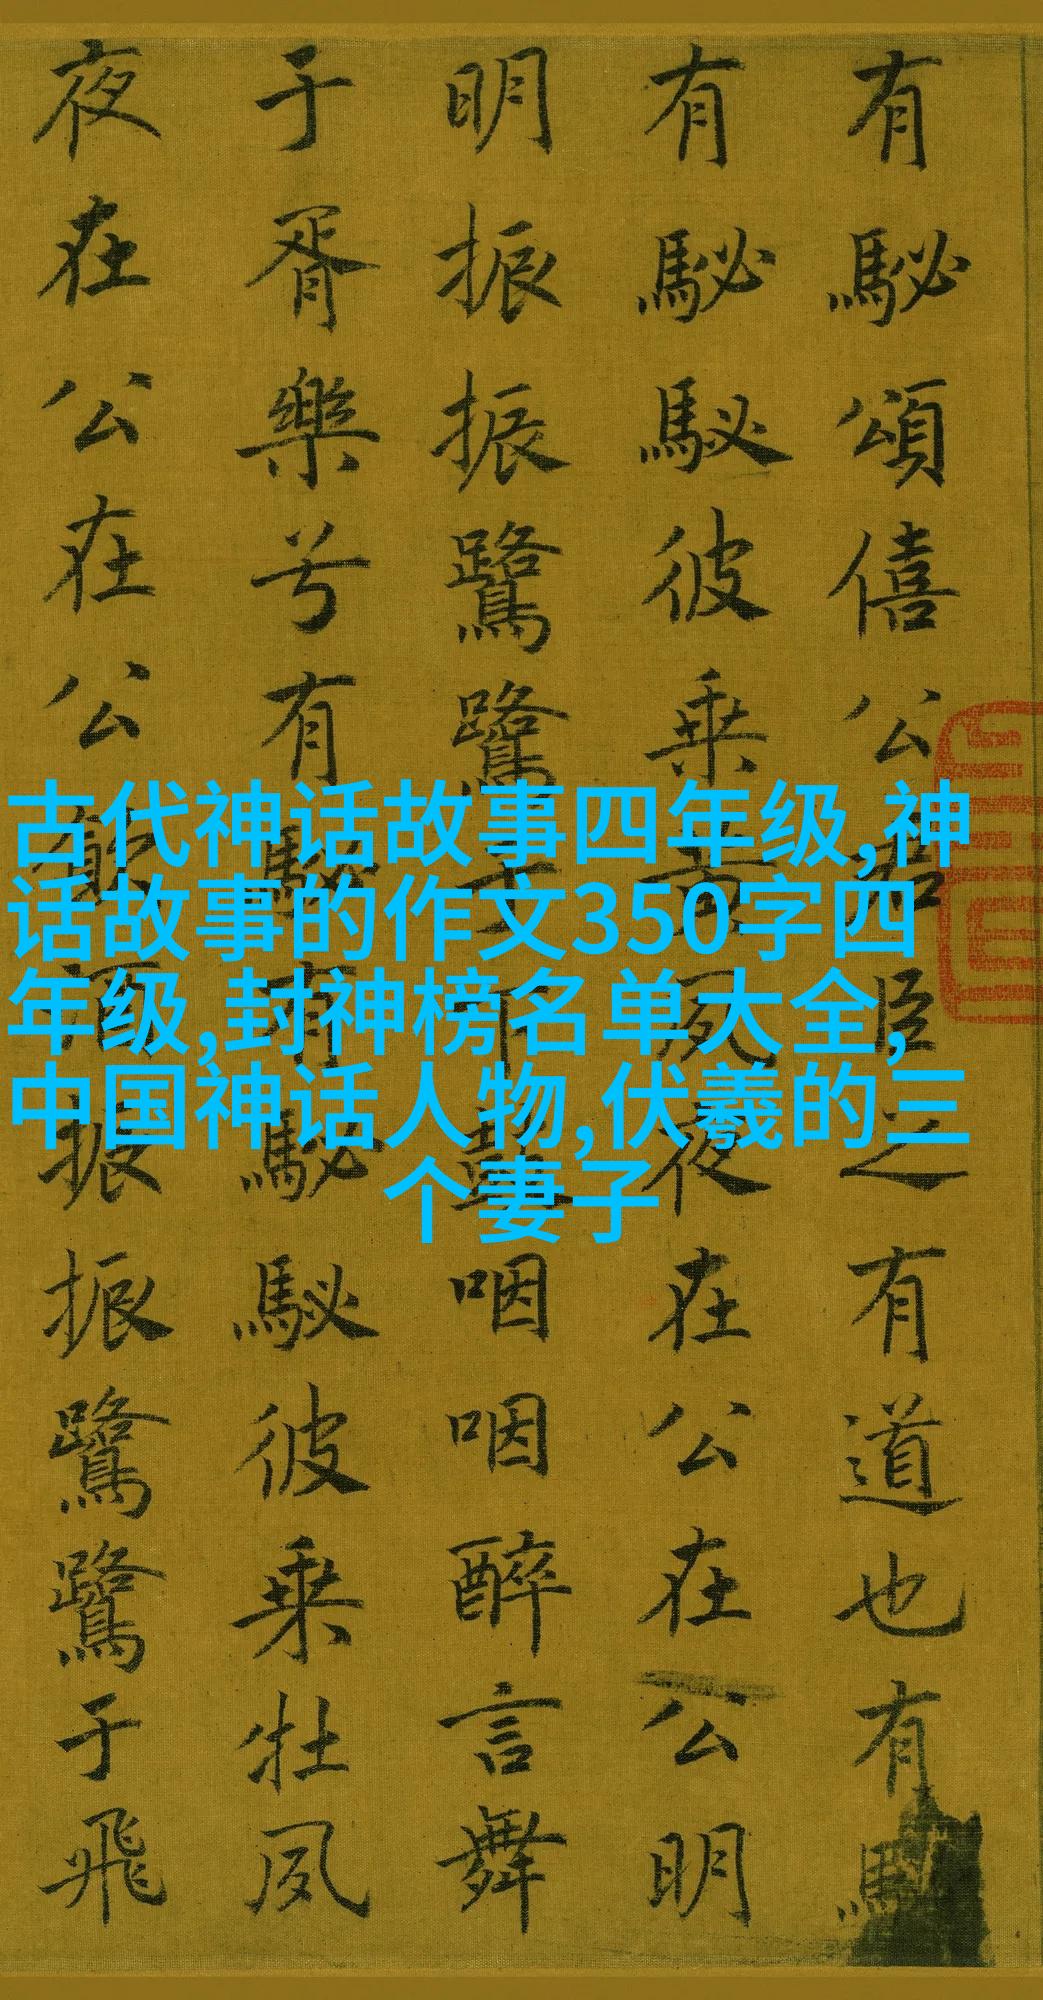 有駜頌僖公君臣之有道也有
有駜駜彼乗黄夙夜在公在公明
明振振鷺鷺于下鼓咽咽醉言舞
于胥樂兮有駜有駜駜彼乗牡夙
夜在公在公飲酒振振鷺鷺于飛
古代神话故事四年级,神
话故事的作文350字四
年级,封神榜名单大全,
中国神话人物,伏羲的三
个妻子